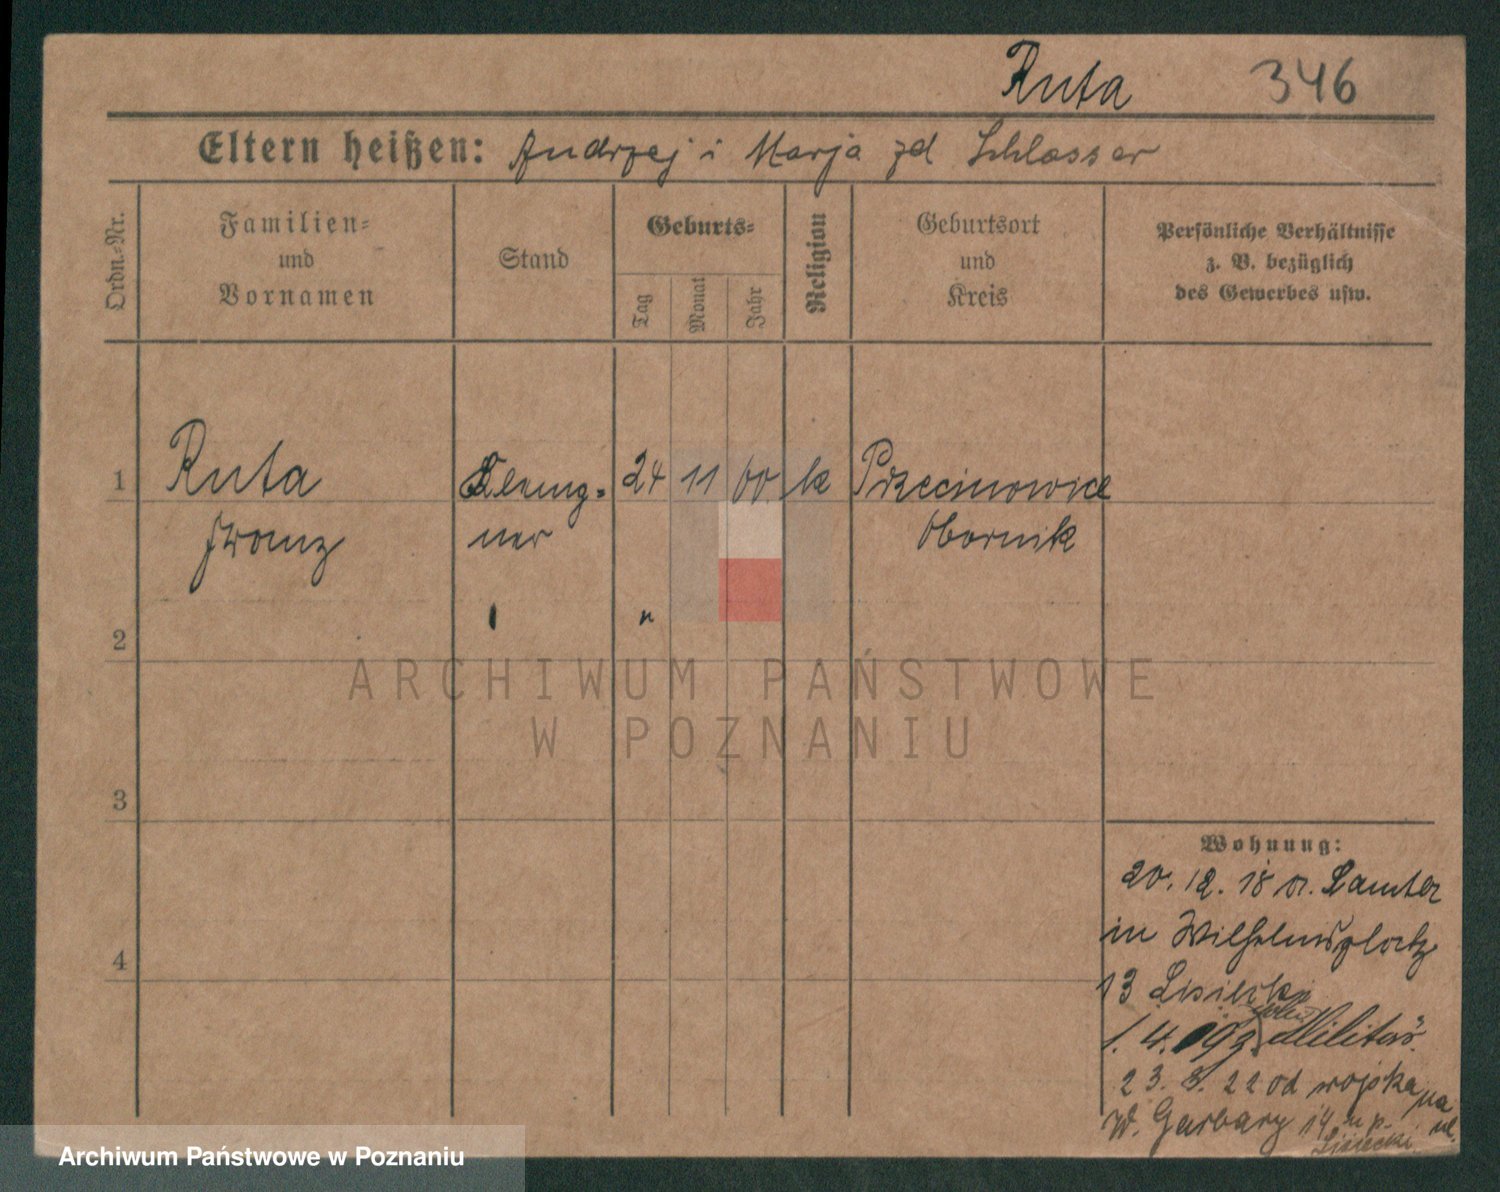 Ruta 346
Eltern heißen: Andrzej i Marja zd Schlosser
Ordn.-Nr.
Familien-
und
Vornamen
Stand
Geburts-
Tag
Monat
Jahr
Religion
Geburtsort
und
Kreis
Persönliche Verhältnisse
z. B. bezüglich
des Gewerbes usw.
1 Ruta 24 11 00 k
Franz ner Obornik
2
3
4
Wohnung:
20. 12. 18 v. Samter
in Wilhelmsplatz
13 Lisiecki
1. 4. Militär
23. 3. 22 od wojska na
W. Garbary 14 ul.
Lisiecki
ARCHIWUM PAŃSTWOWE
W POZNANIU
Archiwum Państwowe w Poznaniu